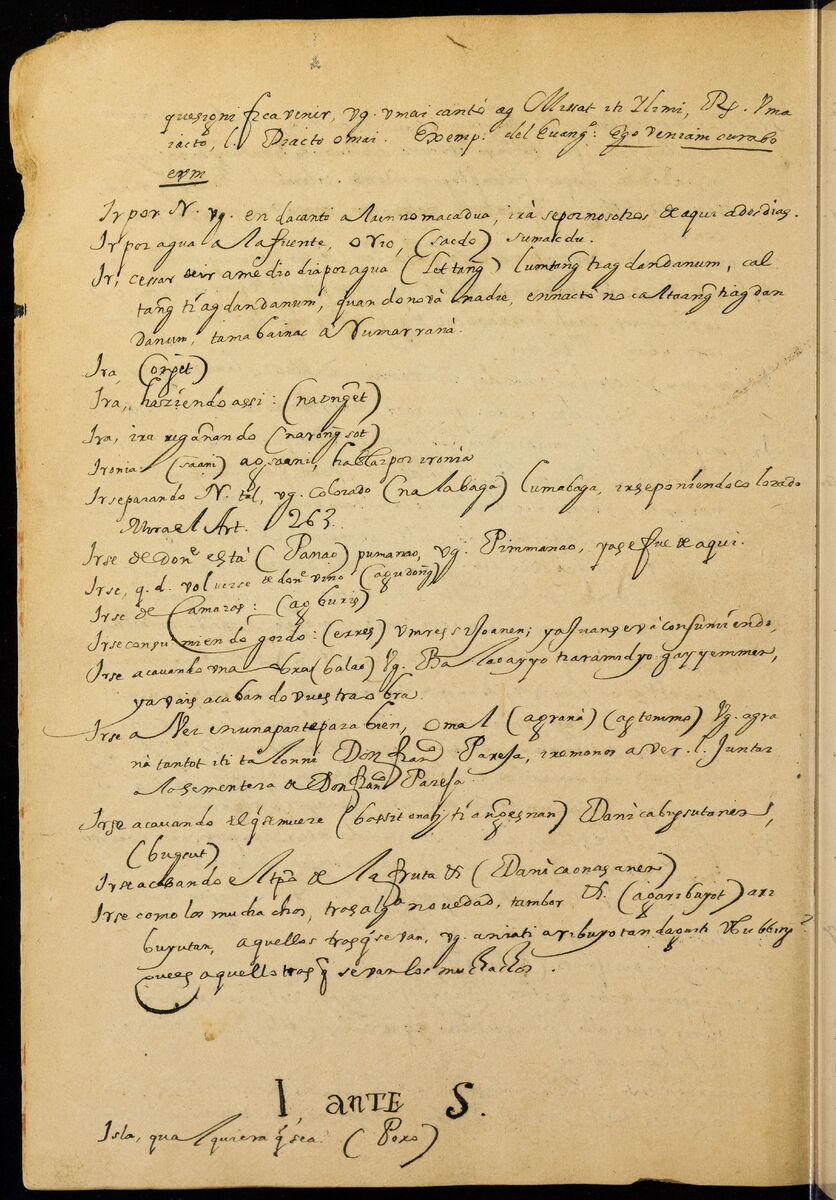 que signi fica venir, vg. vmai canto ag Missat iti Ilimi, Rx. Vma
iacto, l. Diacto omai. Exemp. del Euangº: Ego veniam curabo
eum
Ir por N. vg. en dacanto alaen nomacadua, irà se por nosotros de aqui a dos dias.
Ir por agua a la fuente, o rio, (sacdo) sumacdu.
Ir, cessar de ir a medio dia por agua (lettang) lumtang tiag dandanum, cal
tang ti ag dandanum, quando no và nadie, ennacto no caltaang tiag dan
danum, tama bainac a Vumarraná.
Ira, (orpet)
Ira, haziendo assi: (naonget)
Ira, ira regañando (narongsot)
Ironia (saani) agsaani, hablar por ironia
Irse parando N. tal, vg. Colorado (nalabaga) lumabaga, irse poniendo colorado
Mira el Art. 263.
Irse de donde està (Panao) pumanao, vg. Pimmanao, ya se fue de aqui.
Irse, q. d. volverse de donde vino (agudong)
Irse de Camaras: (agburis)
Irse consumiendo gordo: (erres) vmres si Joanen; ya Juan se và consumiendo,
Irse acavando vna obra (balao) Vg. Balaoayyo tiaramidyo gayyemmen,
ya vais acabando vuestra obra.
Irse a Ver en una parte para bien, o mal (agranà) (agtommo) Vg. agra
nà tantot iti talonni Don franco Paresa, iremonos a ver. l. Juntar
a la sementera de Don franco Paresa
Irse acavando el q̃ se muere (bassit onaij ti angesnan) Danicabugsutanen,
(bugsut)
Irse acabando el tpo de la fruta &c (Danicaonasanen)
Irse como los muchachos, tras alga novedad, tambor &c. (agaribuyot) ari
buyutan, aquellos tras q̃ se van, vg. aniati aribuyotan dagiti Vbbing?
pues aquello tras q̃ se van los muchachos.
I ANTE S.
Isla, qualquiera q̃ sea. (Poro)